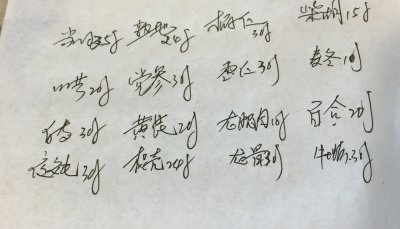 当归15g 熟地20g 柏仁30g 柴胡15g
川芎20g 党参30g 枣仁30g 麦冬10g
30g 黄芪20g 龙眼肉10g 百合20g
夜交 30g 枳壳20g 龙骨30g 牡蛎30g